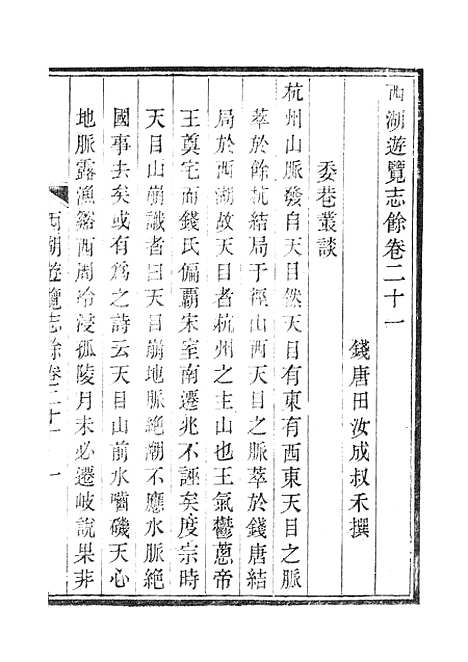 西湖遊覽志餘卷二十一
錢唐田汝成叔禾撰
委巷叢談
杭州山脈發自天目然天目有東有西東天目之脈
萃於餘杭結局于徑山西天目之脈萃於錢唐結
局於西湖故天目者杭州之主山也王氣鬱蔥帝
王奠宅而錢氏偏霸宋室南遷兆不誣矣度宗時
天目山崩識者曰天目崩地脈絕潮不應水脈絕
國事去矣或有為之詩云天目山前水嚙磯天心
地脈露漁磯西周冷浸孤陵月未必遷岐說果非
西湖遊覽志餘卷二十一 一